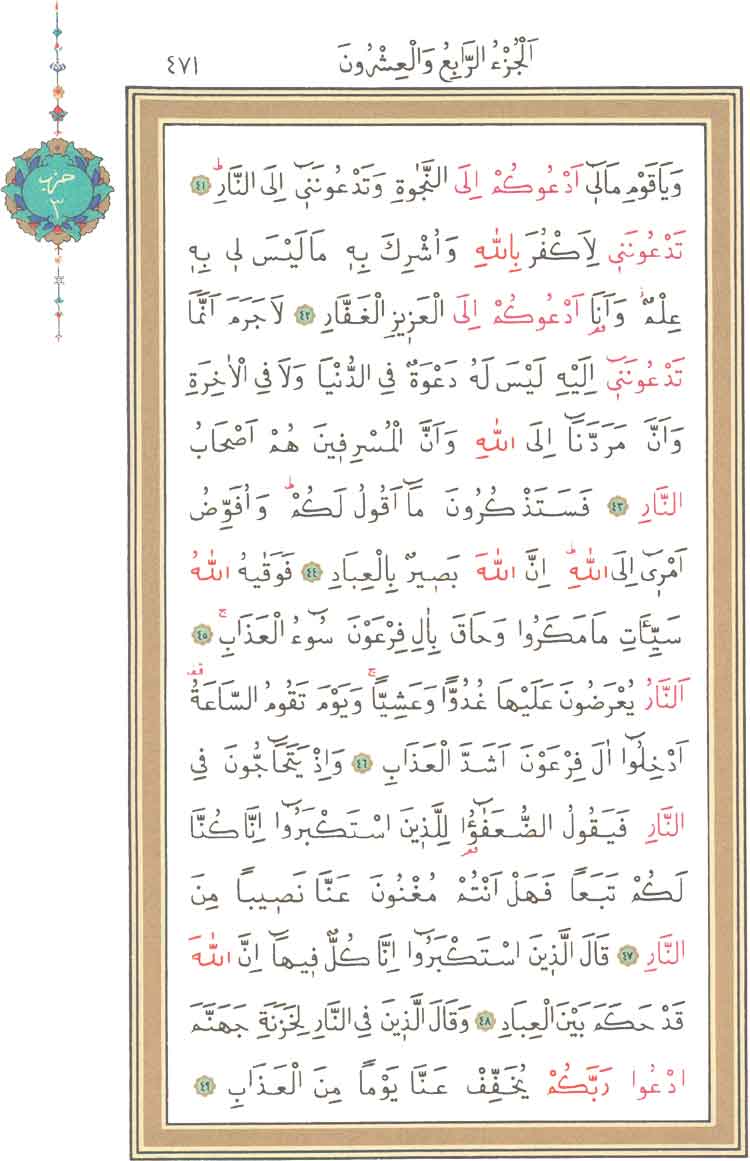 اَلْجُزْءُ الرَّابِعُ وَالْعِشْرُونَ
٤٧١
حزب
٣
وَيَاقَوْمِ مَالٓى اَدْعُوكُمْ اِلَى النَّجٰوةِ وَتَدْعُونَنٓى اِلَى النَّارِۜ ٤١
تَدْعُونَنى لِاَكْفُرَ بِاللّٰهِ وَاُشْرِكَ بِه مَالَيْسَ لى بِه
عِلْمٌۘ وَاَنَا۬ اَدْعُوكُمْ اِلَى الْعَزيزِ الْغَفَّارِ ٤٢ لَاجَرَمَ اَنَّمَا
تَدْعُونَنٓى اِلَيْهِ لَيْسَ لَهُ دَعْوَةٌ فِى الدُّنْيَا وَلَا فِى الْاٰخِرَةِ
وَاَنَّ مَرَدَّنَٓا اِلَى اللّٰهِ وَاَنَّ الْمُسْرِفينَ هُمْ اَصْحَابُ
النَّارِ ٤٣ فَسَتَذْكُرُونَ مَٓا اَقُولُ لَكُمْۜ وَاُفَوِّضُ
اَمْرٓى اِلَى اللّٰهِۜ اِنَّ اللّٰهَ بَصيرٌ بِالْعِبَادِ ٤٤ فَوَقٰيهُ اللّٰهُ
سَيِّـَٔاتِ مَامَكَرُوا وَحَاقَ بِاٰلِ فِرْعَوْنَ سُٓوءُ الْعَذَابِۚ ٤٥
اَلنَّارُ يُعْرَضُونَ عَلَيْهَا غُدُوًّا وَعَشِيًّاۚ وَيَوْمَ تَقُومُ السَّاعَةُ۠
اَدْخِلُٓوا اٰلَ فِرْعَوْنَ اَشَدَّ الْعَذَابِ ٤٦ وَاِذْ يَتَحَٓاجُّونَ فِى
النَّارِ فَيَقُولُ الضُّعَفٰٓؤُ۬ا لِلَّذينَ اسْتَكْبَرُٓوا اِنَّا كُنَّا
لَكُمْ تَبَعًا فَهَلْ اَنْتُمْ مُغْنُونَ عَنَّا نَصيبًا مِنَ
النَّارِ ٤٧ قَالَ الَّذينَ اسْتَكْبَرُٓوا اِنَّا كُلٌّ فيهَٓا اِنَّ اللّٰهَ
قَدْ حَكَمَ بَيْنَ الْعِبَادِ ٤٨ وَقَالَ الَّذينَ فِى النَّارِ لِخَزَنَةِ جَهَنَّمَ
ادْعُوا رَبَّكُمْ يُخَفِّفْ عَنَّا يَوْمًا مِنَ الْعَذَابِ ٤٩